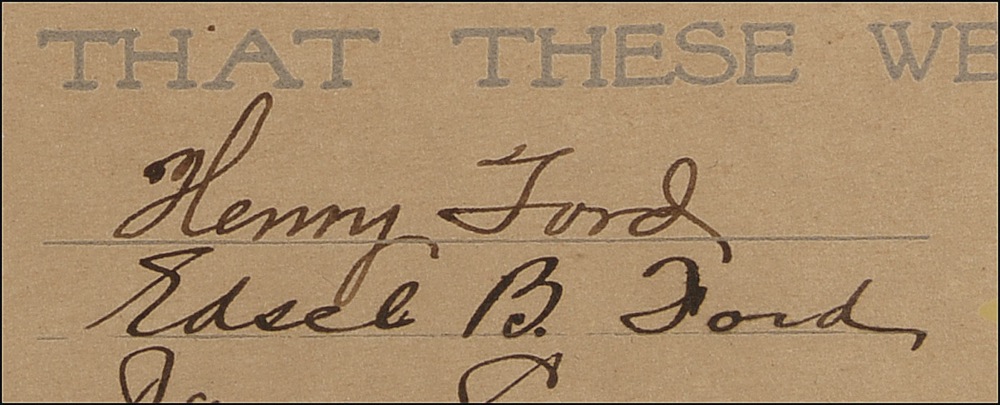 THAT THESE WE
Henry Ford
Edsel B. Ford